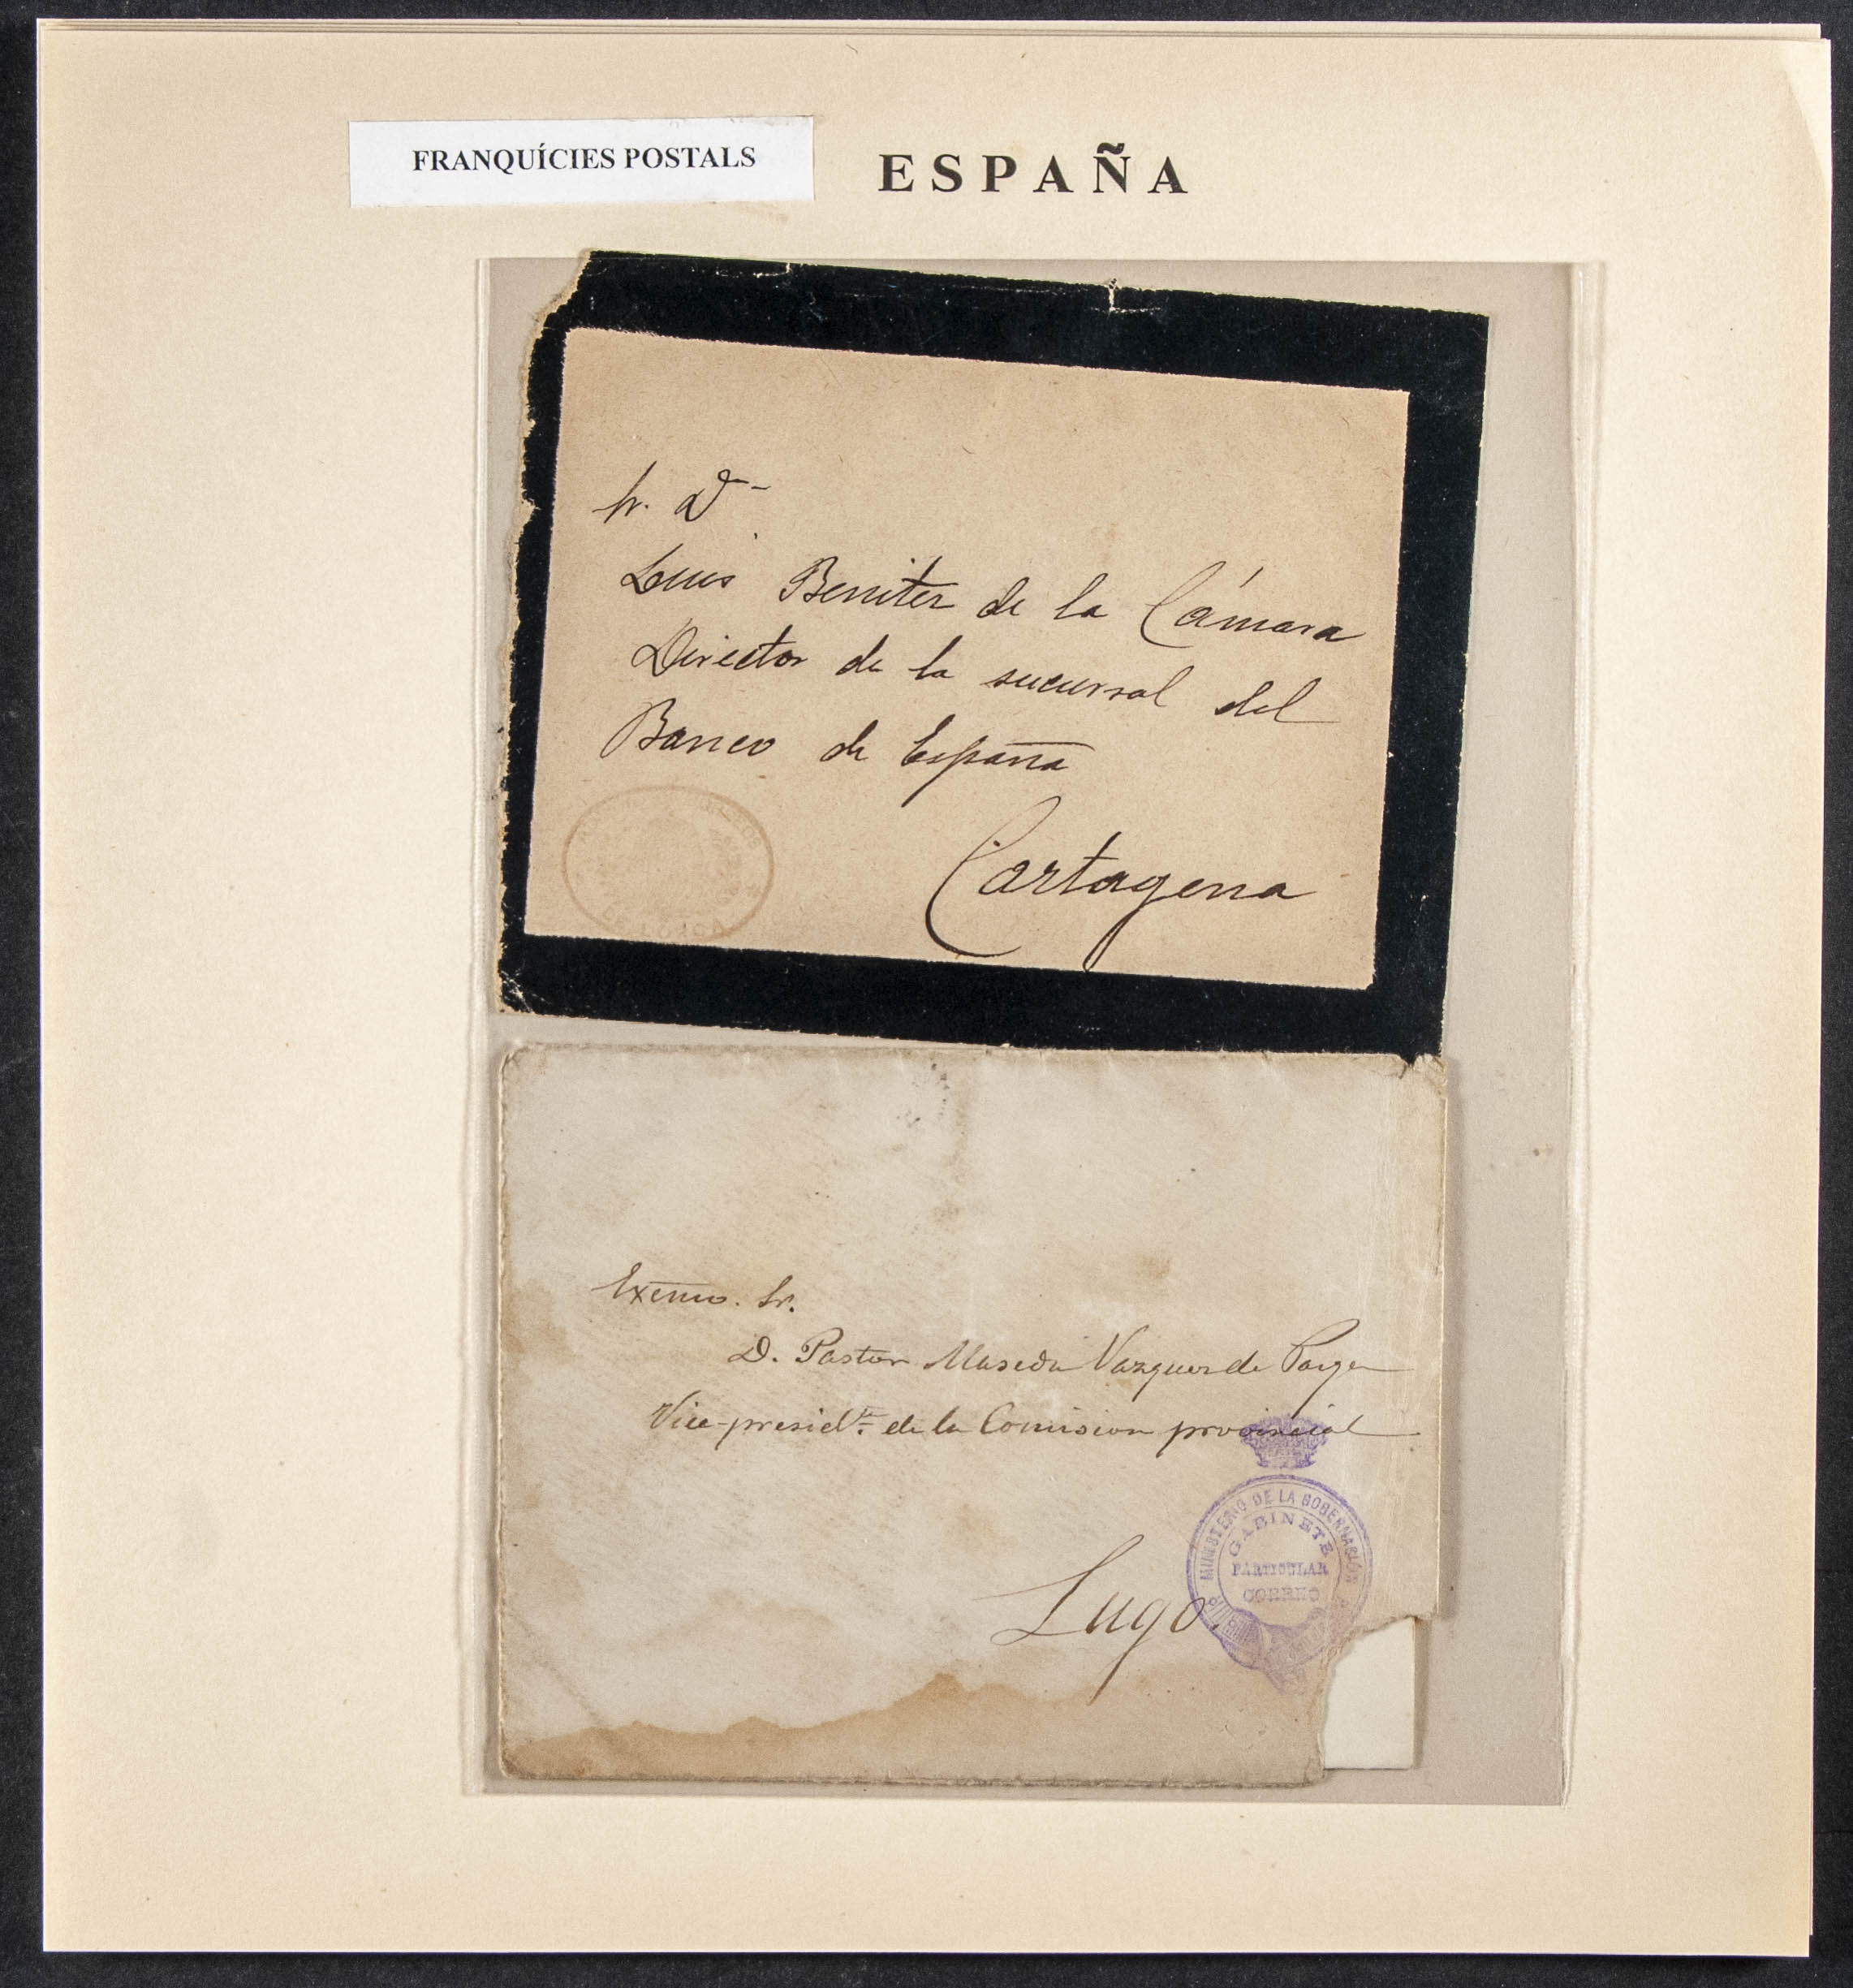 FRANQUÍCIES POSTALS
ESPAÑA
Sr. Dn
Luis Benitez de la Cámara
Director de la sucursal del
Banco de España
Cartagena
Excmo. Sr.
D. Pastor Maseda Vazquez de Parga
Vice-presidte de la Comision provincial
Lugo.
MINISTERIO DE LA GOBERNACIÓN
GABINETE
PARTICULAR
CORREO